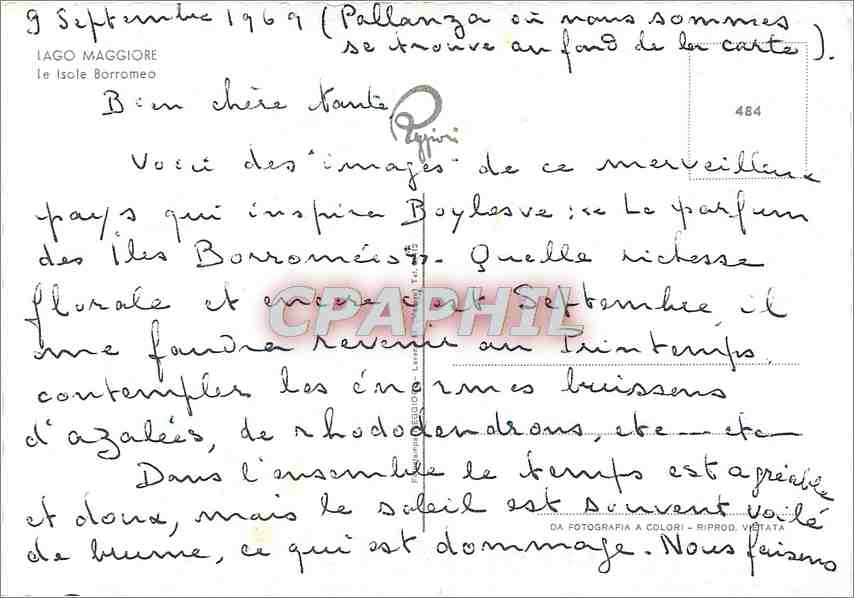 9 Septembre 1969 (Pallanza où nous sommes
se trouve au fond de la carte).
LAGO MAGGIORE
Le Isole Borromeo
Bien chère tante
Reggiori
484
Voici des "images" de ce merveilleux
pays qui inspira Boylesve : « Le parfum
des Îles Borromées ». Quelle richesse
florale et encore c'est Septembre, il
me faudra revenir au Printemps
contempler les énormes buissons
d'azalées, de rhododendrons, etc — etc —
Dans l'ensemble le temps est agréable
et doux, mais le soleil est souvent voilé
de brume, ce qui est dommage. Nous faisons
DA FOTOGRAFIA A COLORI - RIPROD. VIETATA
CPAPHIL